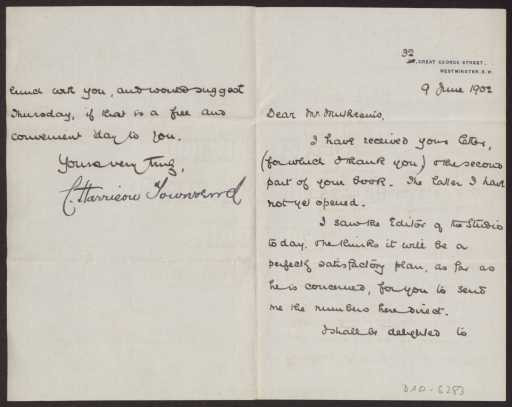 32
GREAT GEORGE STREET,
WESTMINSTER. S.W.
9 June 1902
Dear Mr Muthesius,
I have received your letter,
(for which I thank you) & the second
part of your book. The latter I have
not yet opened.
I saw the Editor of the Studio
to day. He thinks it will be a
perfectly satisfactory plan, as far as
he is concerned, for you to send
me the numbers here direct.
I shall be delighted to
lunch with you, and would suggest
Thursday, if that is a free and
convenient day to you.
Yours very truly,
C. Harrison Townsend
D 10 - 6283